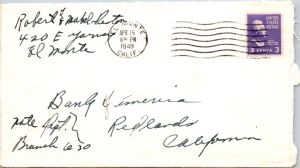 Robert & Mabel
420 E
El Monte
EL MONTE
APR 15
6 PM
1949
CALIF.
UNITED STATES
POSTAGE
3 CENTS 3
Bank of America
Note Dept.
Redlands
Branch 630
California